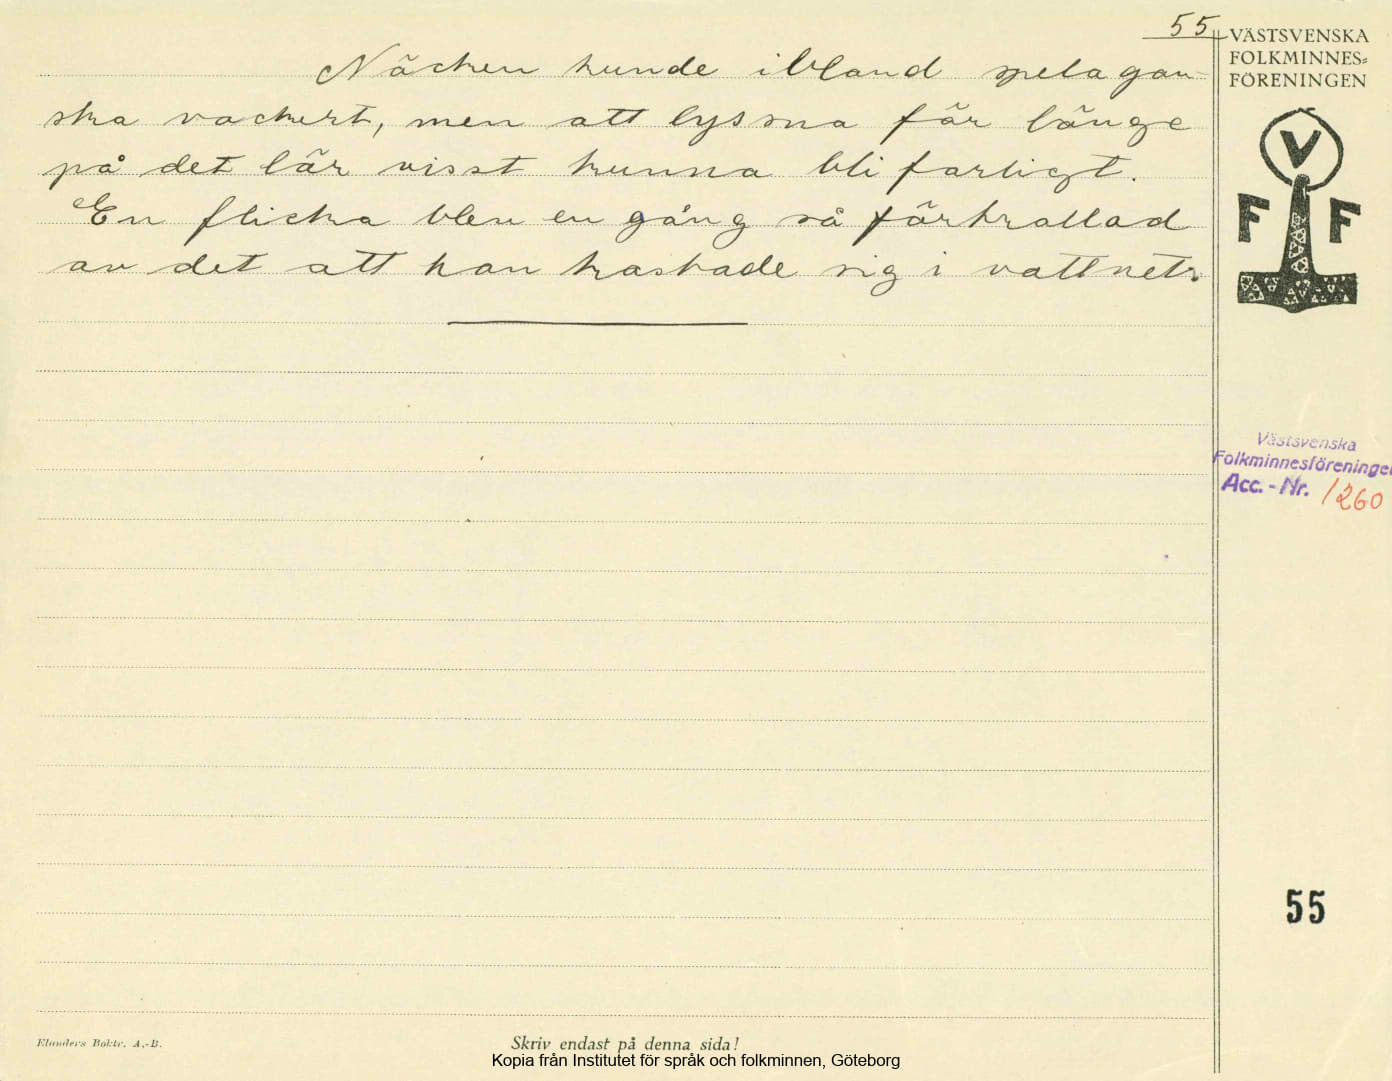 55
VÄSTSVENSKA
FOLKMINNES=
FÖRENINGEN
Näcken kunde ibland spela gan-
ska vackert, men att lyssna för länge
på det lär visst kunna bli farligt.
En flicka blev en gång så förtrollad
av det att hon kastade sig i vattnet.
V
F F
Västsvenska
Folkminnesföreningen
Acc.-Nr. 1260
55
Elanders Boktr. A.-B.
Skriv endast på denna sida!
Kopia från Institutet för språk och folkminnen, Göteborg